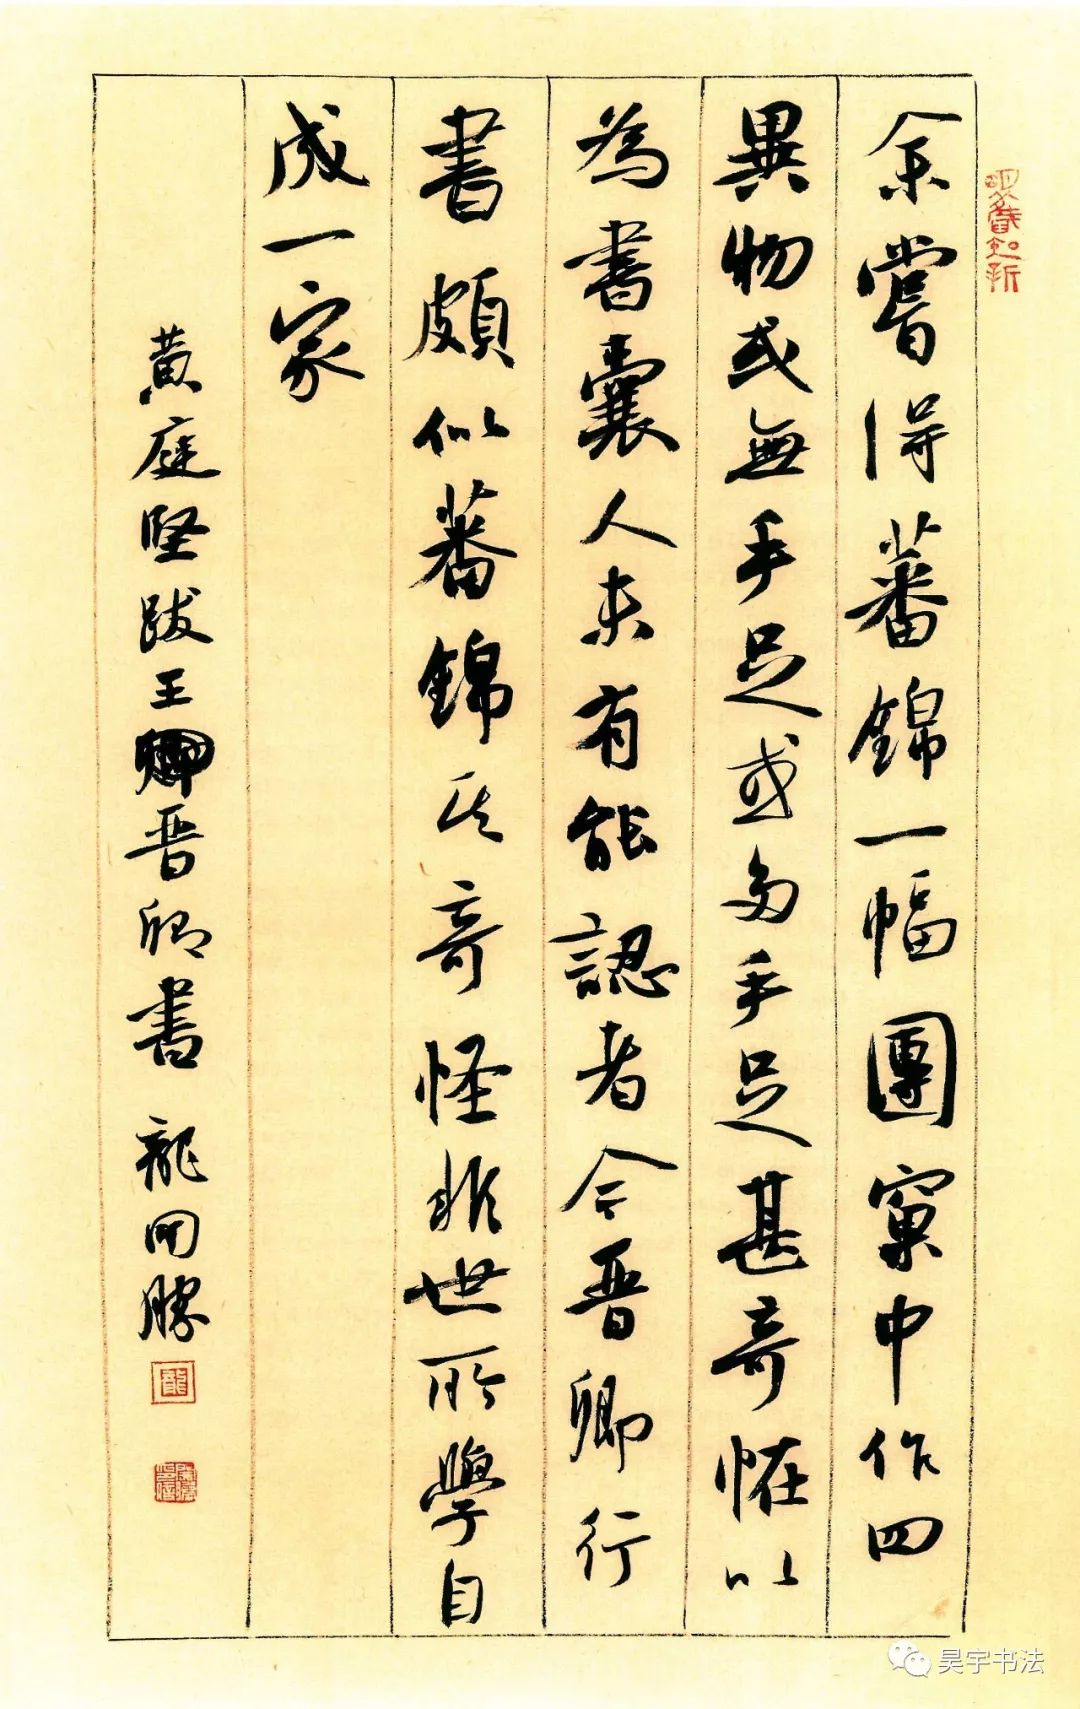 余嘗得蕃錦一幅團窠中作四
異物或無手足或多手足甚奇怪以
為書囊人未有能認者今晋卿行
書頗似蕃錦其奇怪非世所學自
成一家
黄庭堅跋王晋卿書 龍開勝
昊宇书法